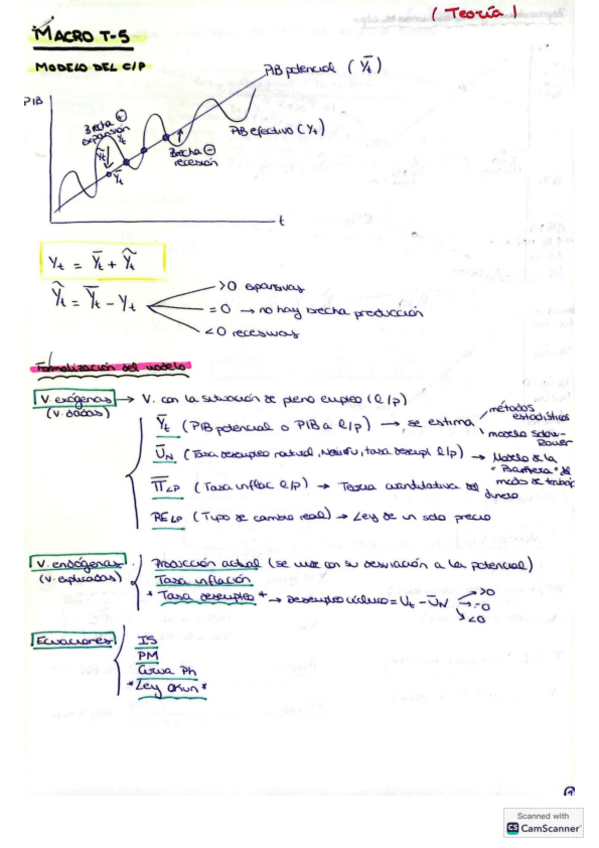 ( Teoría )
MACRO T-5
MODELO DEL C/P
PIB potencial ( Y̅t )
PIB
Brecha ⊕
expansión
Yt
Ỹt
Y̅t
PIB efectivo ( Yt )
Brecha ⊖
recesión
t
Yt = Y̅t + Ỹt
Ỹt = Y̅t - Yt
>0 expansivas
= 0 → no hay brecha producción
<0 recesivas
Formalización del modelo
V. exógenas → V. con la situación de pleno empleo ( l/p )
(V. dadas)
Y̅t ( PIB potencial o PIB a l/p ) → se estima
métodos estadísticos
modelo Solow-
U̅N ( Tasa desempleo natural, NAIRU, tasa desempl l/p ) → Modelo de la
"Barrera" del
mdo de trabajo
Π̅LP ( Tasa inflac l/p ) → Teoría cuantitativa del
dinero
RELP ( Tipo de cambio real ) → Ley de un solo precio
V. endógenas
(V. explicadas)
Producción actual ( se mide con su desviación a la potencial )
Tasa inflación
* Tasa desempleo * → Desempleo cíclico = Ut - U̅N
>0
=0
<0
Ecuaciones
IS
PM
Curva Ph
* Ley Okun *
1
Scanned with
CS CamScanner